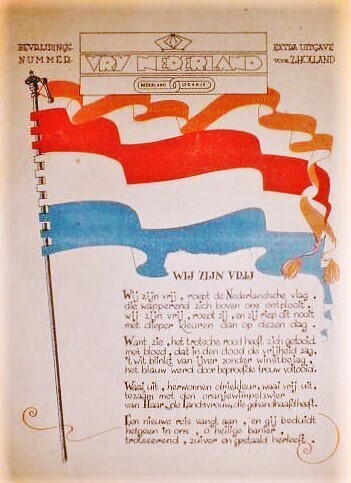 BEVRIJDINGS
NUMMER
VRY NEDERLAND
NEDERLAND ORANJE
EXTRA UITGAVE
VOOR Z.HOLLAND
WIJ ZIJN VRIJ
Wij zijn vrij, roept de Nederlandsche vlag,
die wapperend zich boven ons ontplooit,
wij zijn vrij, roept zij, en zij riep dit nooit
met dieper kleuren dan op dezen dag.
Want zie, het trotsche rood heeft zich getooid
met bloed, dat in den dood de vrijheid zag,
't wit blinkt van ijver zonder winstbejag,
het blauw werd door beproefde trouw voltooid.
Waai uit, herwonnen driekleur, waai vrij uit
tezaam met den oranjewimpelzwier
van Haar, de Landsvrouw, die gehandhaafd heeft.
Een nieuwe reis vangt aan, en gij beduidt
hetgeen in ons, o heilige banier,
trotseerend, zuiver en gestaald herleeft.